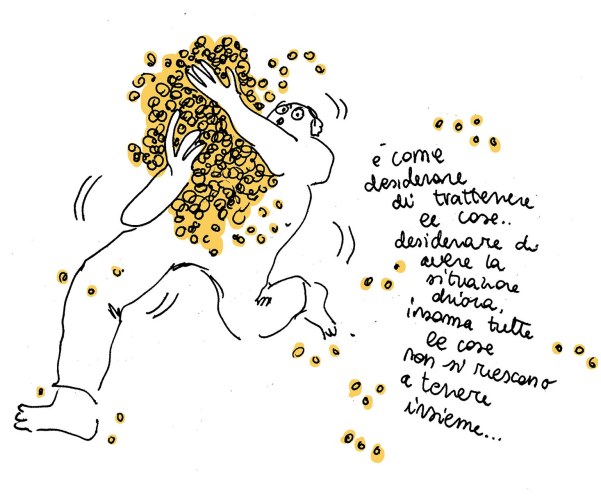 è come
desiderare
di trattenere
le cose..
desiderare di
avere la
situazione
d'ora,
insoma tutte
le cose
non si riescono
a tenere
insieme...